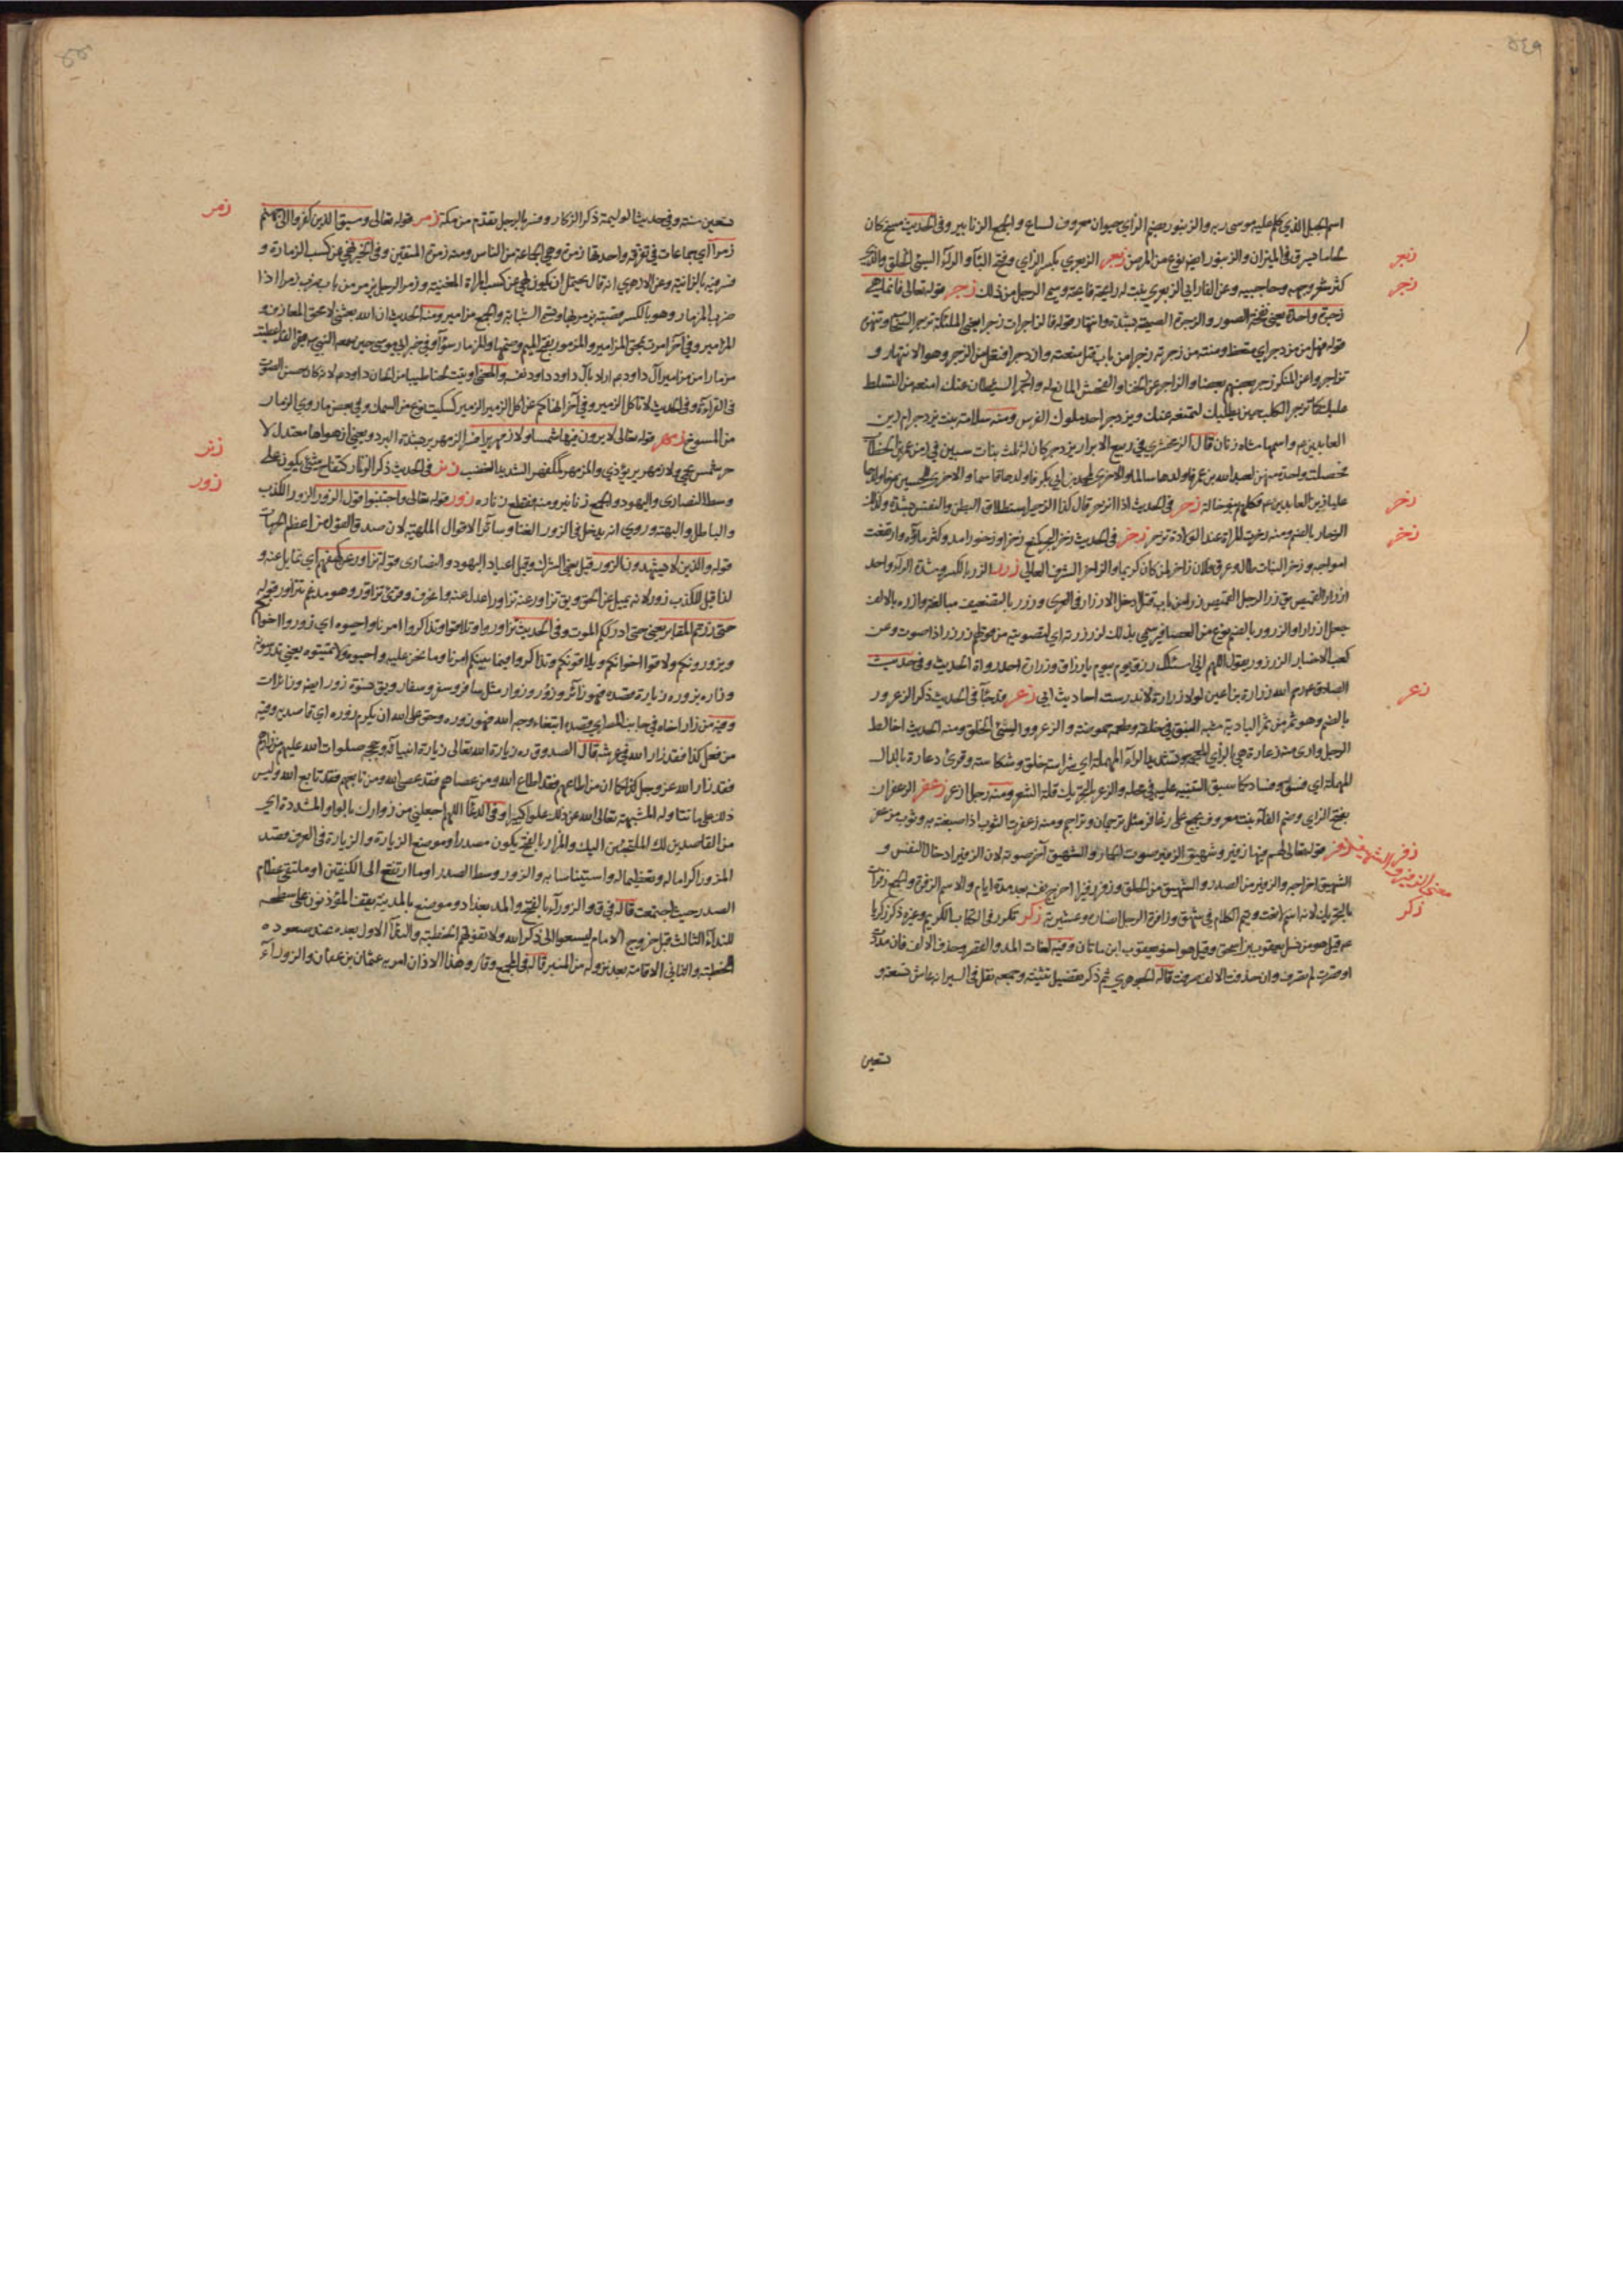 ٥٤٩
اسم الجبل الذي كلم عليه موسى ربه والزنبور بضم الزاي حيوان معروف لساع والجمع الزنابير وفي الحديث مسخ كان
لحاما يسرق في الميزان والزنبور ايضا نوع من زبعر الزبعرى بكسر الزاي وفتح الباء والراء السيئ الخلق والذي
كثر شعر وجهه وحاجبيه وعن الفارابي الزبعرى نبت له رائحة فايحة وسمي الرجل من ذلك زجر قوله تعالى فانما هي
زجرة واحدة يعني نفخة الصور والزجرة الصيحة بشدة وانتهار قوله فالزاجرات زجرا يعني الملئكة تزجر السحاب
قوله مزدجر اي متعظ ومنته من زجرته زجرا من باب قتل منعته وازدجر افتعل من الزجر وهو الانتهار و
تزاجروا عن المنكر زجر بعضهم بعضا والزاجر عن الخنا والفحش المانع له وازجر الشيطان عنك امنعه من التسلط
عليك كما تزجر الكلب حين يطلبك لتمنعه عنك ويزدجر احد ملوك الفرس ومنه سلامة بنت يزدجر ام زين
العابدين ع واسمها شاه زنان قال الزمخشري في ربيع الابرار يزدجر كان له ثلث بنات سبين في زمن عمر بن الخطاب
فحصلت واحدة منهن لعبد الله بن عمر فاولدها سالما والاخرى لمحمد بن ابي بكر فاولدها قاسما والاخرى للحسين ع فاولدها
عليا زين العابدين ع فكلهم بنو خالة زحر في الحديث الزحير استطلاق البطن والتنفس بشدة وكذلك
الزحار بالضم ومنه زحرت المراة عند الولادة تزحر زخر في الحديث زخر البحر كمنع زخرا وزخورا مد وكثر ماؤه وارتفعت
امواجه وزخر النبات طال وعرق فلان زاخر لمن كان كريما والزاخر الشرف العالي زرر الزر بالكسر وشدة الراء واحد
ازرار القميص يق زر الرجل القميص زرا من باب قتل ادخل الازرار في العرى وزرر بالتضعيف مبالغة وازره بالالف
جعل له ازرارا والزرزور بالضم نوع من العصافير سمي بذلك لزرزرته اي لتصويته من قولهم زرزر اذا صوت وعن
كعب الاحبار الزرزور يقول اللهم اني اسئلك رزق يوم بيوم يا رزاق وزرارة احد رواة الحديث وفي حديث
الصادق ع رحم الله زرارة بن اعين لولا زرارة لاندرست احاديث ابي زعر في الحديث ذكر الزعرور
بالضم وهو ثمر من ثمر البادية يشبه النبق في خلقه وطعمه حموضة والزعرور السيئ الخلق ومنه الحديث اخالط
الرجل وارى منه زعارة هي بالزاي المعجمة وتشديد الراء المهملة اي شراسة خلق وشكاسة وقرئ دعارة بالدال
المهملة اي فسق وفساد كما سبق التنبيه عليه في محله والزعر بالتحريك قلة الشعر ومنه رجل ازعر زعفر الزعفران
بفتح الزاي وضم الفاء نبت معروف يجمع على زعافر مثل ترجمان وتراجم ومنه زعفرت الثوب اذا صبغته به وثوب مزعفر
زفر قوله تعالى لهم فيها زفير وشهيق الزفير صوت الحمار والشهيق آخر صوته لان الزفير ادخال النفس و
الشهيق اخراجه والزفير من الصدر والشهيق من الحلق وزفر يزفر زفيرا اخرج نفسه بعد مده اياه والاسم الزفرة والجمع زفرات
بالتحريك لانه اسم لا نعت ويتم الكلام في شهق وزافرة الرجل انصاره وعشيرته زكر تكرر في الكتاب الكريم وغيره ذكر زكريا
ع م قيل هو من نسل يعقوب بن اسحق وقيل هو اخو يعقوب ابن ماتان وفيه لغات المد والقصر وحذف الالف فان مددت
او قصرت لم تصرف وان حذفت الالف صرفت قاله الجوهري ثم ذكر تفصيل تثنيته وجمعه نقل في السير انه عاش تسعة و
تسعين
زبعر
زجر
زحر
زخر
زعر
زفر
معنى الزفير والشهيق
زكر
تسعين سنة وفي حديث الوليمة ذكر الزكار وفسر بالرجل يقدم من مكة زمر قوله تعالى وسيق الذين كفروا الى جهنم
زمرا اي جماعات في تفرقة واحدتها زمرة وهي الجماعة من الناس ومنه زمرة المتقين وفي الخبر نهي عن كسب الزمارة و
فسرت بالزانية وعن الازهري انه قال يحتمل ان يكون نهي عن كسب المراة المغنية وزمر الرجل يزمر من باب ضرب زمرا اذا
ضرب المزمار وهو بالكسر قصبة يزمر بها وتسمى الشبابة والجمع مزامير ومنه الحديث ان الله بعثني لامحق المعازف و
المزامير وفي آخر امرت بمحق المزامير والمزمور بفتح الميم وضمها والمزمار سواء وفي خبر ابي موسى حين سمعه النبي ص يقرأ لقد اعطيت
مزمارا من مزامير آل داود ع م اراد بآل داود داود نفسه والمعنى اوتيت لحنا طيبا من الحان داود ع م لانه كان حسن الصوت
في القراءة وفي الحديث لا تاكل الزمير وفي آخر انهاكم عن اكل الزمير الزمير كسكيت نوع من السمك وفي بعض ما روي الزمار
من المسوخ زمهر قوله تعالى لا يرون فيها شمسا ولا زمهريرا فسر الزمهرير بشدة البرد ويعني ان هواها معتدل لا
حر شمس يحمي ولا زمهرير يؤذي والمزمهر كمكفهر الشديد الغضب زنر في الحديث ذكر الزنار كتفاح شئ يكون على
وسط النصارى واليهود والجمع زنانير ومنه فقطع زناره زور قوله تعالى واجتنبوا قول الزور الزور الكذب
والباطل والبهتة وروي انه يدخل في الزور الغنا وسائر الاقوال الملهية لان صدق القول من اعظم الحرمات
قوله والذين لا يشهدون الزور قيل يعني الشرك وقيل اعياد اليهود والنصارى وقوله تزاور عن كهفهم اي تمايل عنه و
لذا قيل للكذب زور لانه يميل عن الحق ويق تزاور عنه تزاورا عدل عنه وانحرف وقرئ تزاور وهو مدغم تتزاور قوله
حتى زرتم المقابر يعني حتى ادرككم الموت وفي الحديث تزاوروا وتلاقوا وتذاكروا امرنا واحيوه اي زوروا اخوانكم
ويزورونكم ولاقوا اخوانكم ويلاقونكم وتذاكروا فيما بينكم امرنا وما نحن عليه واحيوه ولا تميتوه
وزاره يزوره زيارة قصده فهو زائر وزور وزوار مثل سافر وسفر وسفار ويق نسوة زور ايضا وزائرات
وفيه من زار اخاه في جانب المصر اي قصده ابتغاء وجه الله فهو زوره وحق على الله ان يكرم زوره اي قاصديه وفيه
من فعل كذا فقد زار الله في عرشه قال الصدوق ره زيارة الله تعالى زيارة انبيائه وحججه صلوات الله عليهم من زارهم
فقد زار الله عز وجل كما ان من اطاعهم فقد اطاع الله ومن عصاهم فقد عصى الله ومن تابعهم فقد تابع الله وليس
ذلك على ما تتاوله المشبهة تعالى الله عن ذلك علوا كبيرا وفي الدعاء اللهم اجعلني من زوارك بالواو المشددة اي
من القاصدين لك الملتجئين اليك والمزار بالفتح يكون مصدرا وموضع الزيارة والزيارة في العرف قصد
المزور اكراما له وتعظيما له واستيناسا به والزور وسط الصدر او ما ارتفع الى الكتفين او ملتقى عظام
الصدر حيث اجتمعت قاله في ق والزوراء بالفتح والمد بغداد وموضع بالمدينة يقف المؤذنون على سطحه
للنداء الثالث قبل خروج الامام ليسعوا الى ذكر الله ولا تفوتهم الخطبة والنداء الاول بعده عند صعوده
الخطبة والثاني الاقامة بعد نزوله من المنبر قاله في المجمع وقال وهذا الاذان امر به عثمان بن عفان والزوراء
زمر
زنر
زور